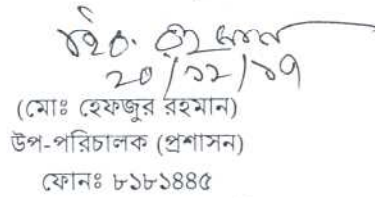 ২০/১২/১৭
(মোঃ হেফজুর রহমান)
উপ-পরিচালক (প্রশাসন)
ফোনঃ ৮১৮১৪৪৫